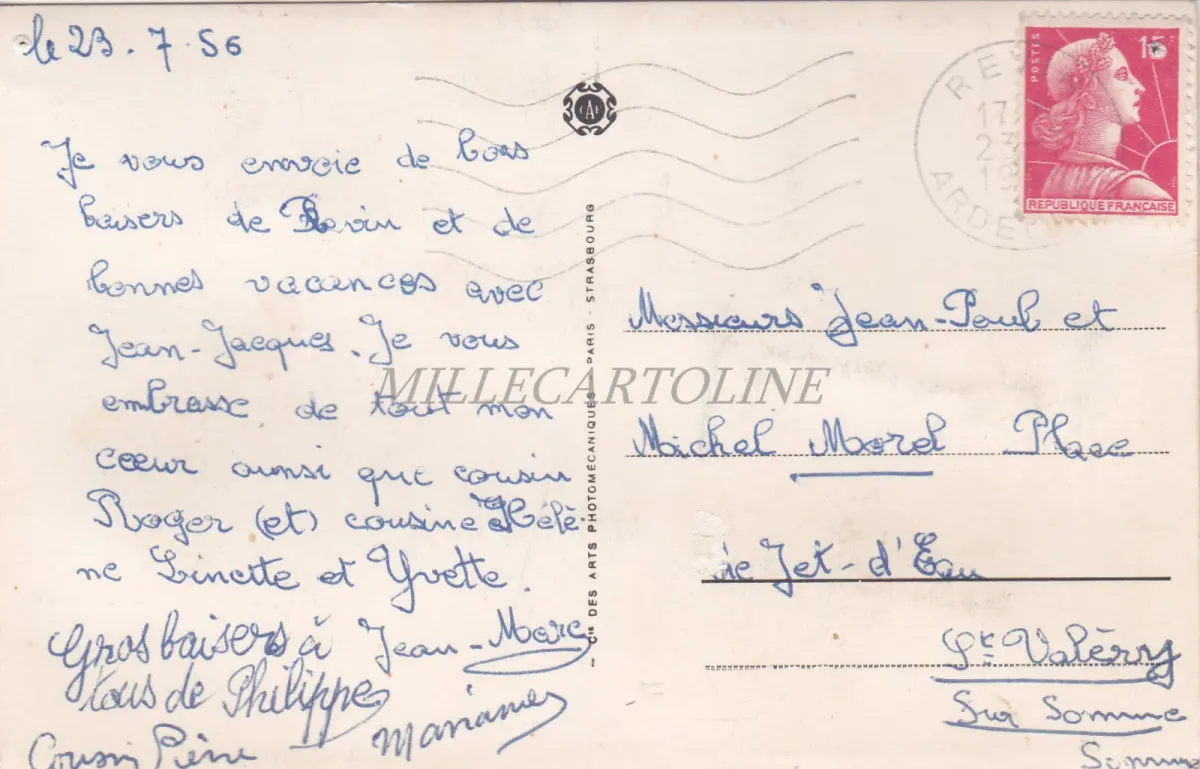 le 23 . 7 56
Je vous envoie de bons
baisers de Revin et de
bonnes vacances avec
Jean-Jacques. Je vous
embrasse de tout mon
cœur ainsi que cousin
Roger (et) cousine Hélè-
ne Linette et Yvette.
Jean-Marc
Gros baisers à
tous de Philippe
Marianne
Cousin Pierre
Cie DES ARTS PHOTOMÉCANIQUES - PARIS - STRASBOURG
CAP
POSTES
15F
REPUBLIQUE FRANÇAISE
RE
17
23
19
ARDE
MILLECARTOLINE
Messieurs Jean-Paul et
Michel Morel Place
Jet-d'Eau
St Valèry
Sur Somme
Somme